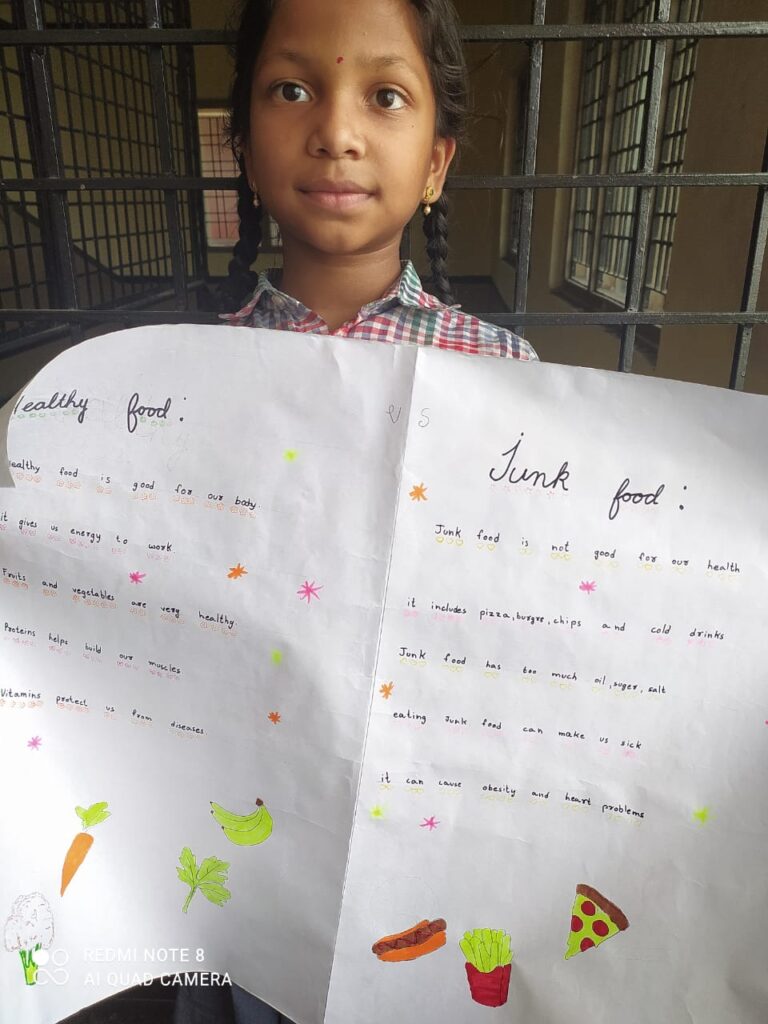 Healthy food :
Healthy food is good for our body.
it gives us energy to work.
Fruits and vegetables are very healthy.
Proteins helps build our muscles.
Vitamins protect us from diseases.
VS
Junk food :
Junk food is not good for our health
it includes pizza, burgre, chips and cold drinks
Junk food has too much oil, suger, salt
eating Junk food can make us sick
it can cause obesity and heart problems
REDMI NOTE 8
AI QUAD CAMERA